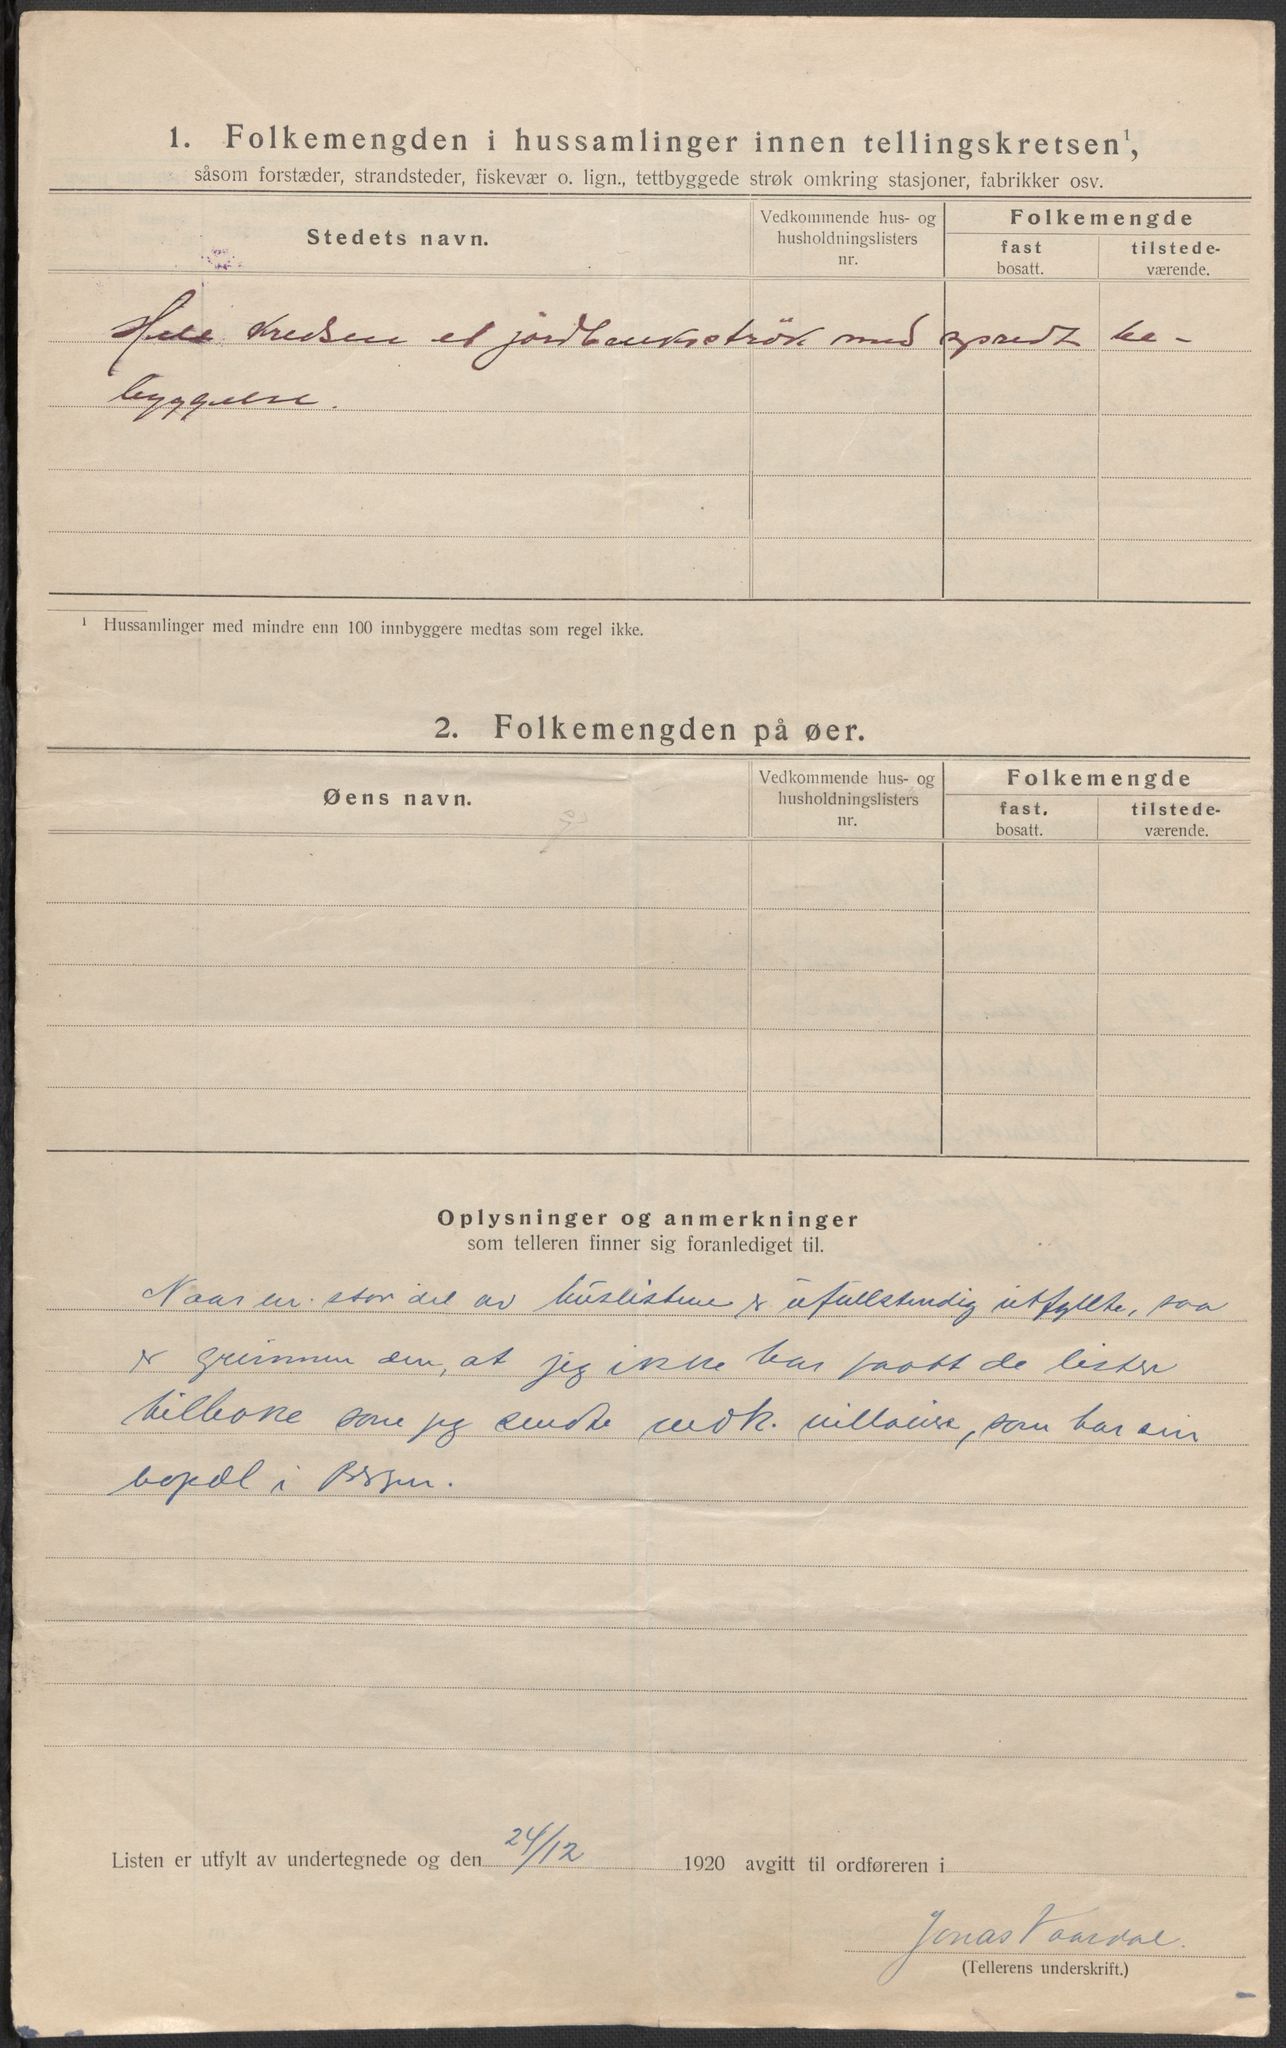 1. Folkemengden i hussamlinger innen tellingskretsen¹,
såsom forstæder, strandsteder, fiskevær o. lign., tettbyggede strøk omkring stasjoner, fabrikker osv.
Stedets navn.
Vedkommende hus- og
husholdningslisters
nr.
Folkemengde
fast
bosatt.
tilstede-
værende.
Hele Kredsen et jordbruksströk med spredt be-
byggelse.
¹ Hussamlinger med mindre enn 100 innbyggere medtas som regel ikke.
2. Folkemengden på øer.
Øens navn.
Vedkommende hus- og
husholdningslisters
nr.
Folkemengde
fast.
bosatt.
tilstede-
værende.
Oplysninger og anmerkninger
som telleren finner sig foranlediget til.
Naar en stor del av huslistene er ufullstendig utfyllte, saa
er grunnen den, at jeg ikke har faatt de lister
tilbake som jeg sendte vedk. villaeiere, som har sin
bopæl i Bergen.
Listen er utfylt av undertegnede og den 24/12 1920 avgitt til ordføreren i
Jonas Vaardal.
(Tellerens underskrift.)